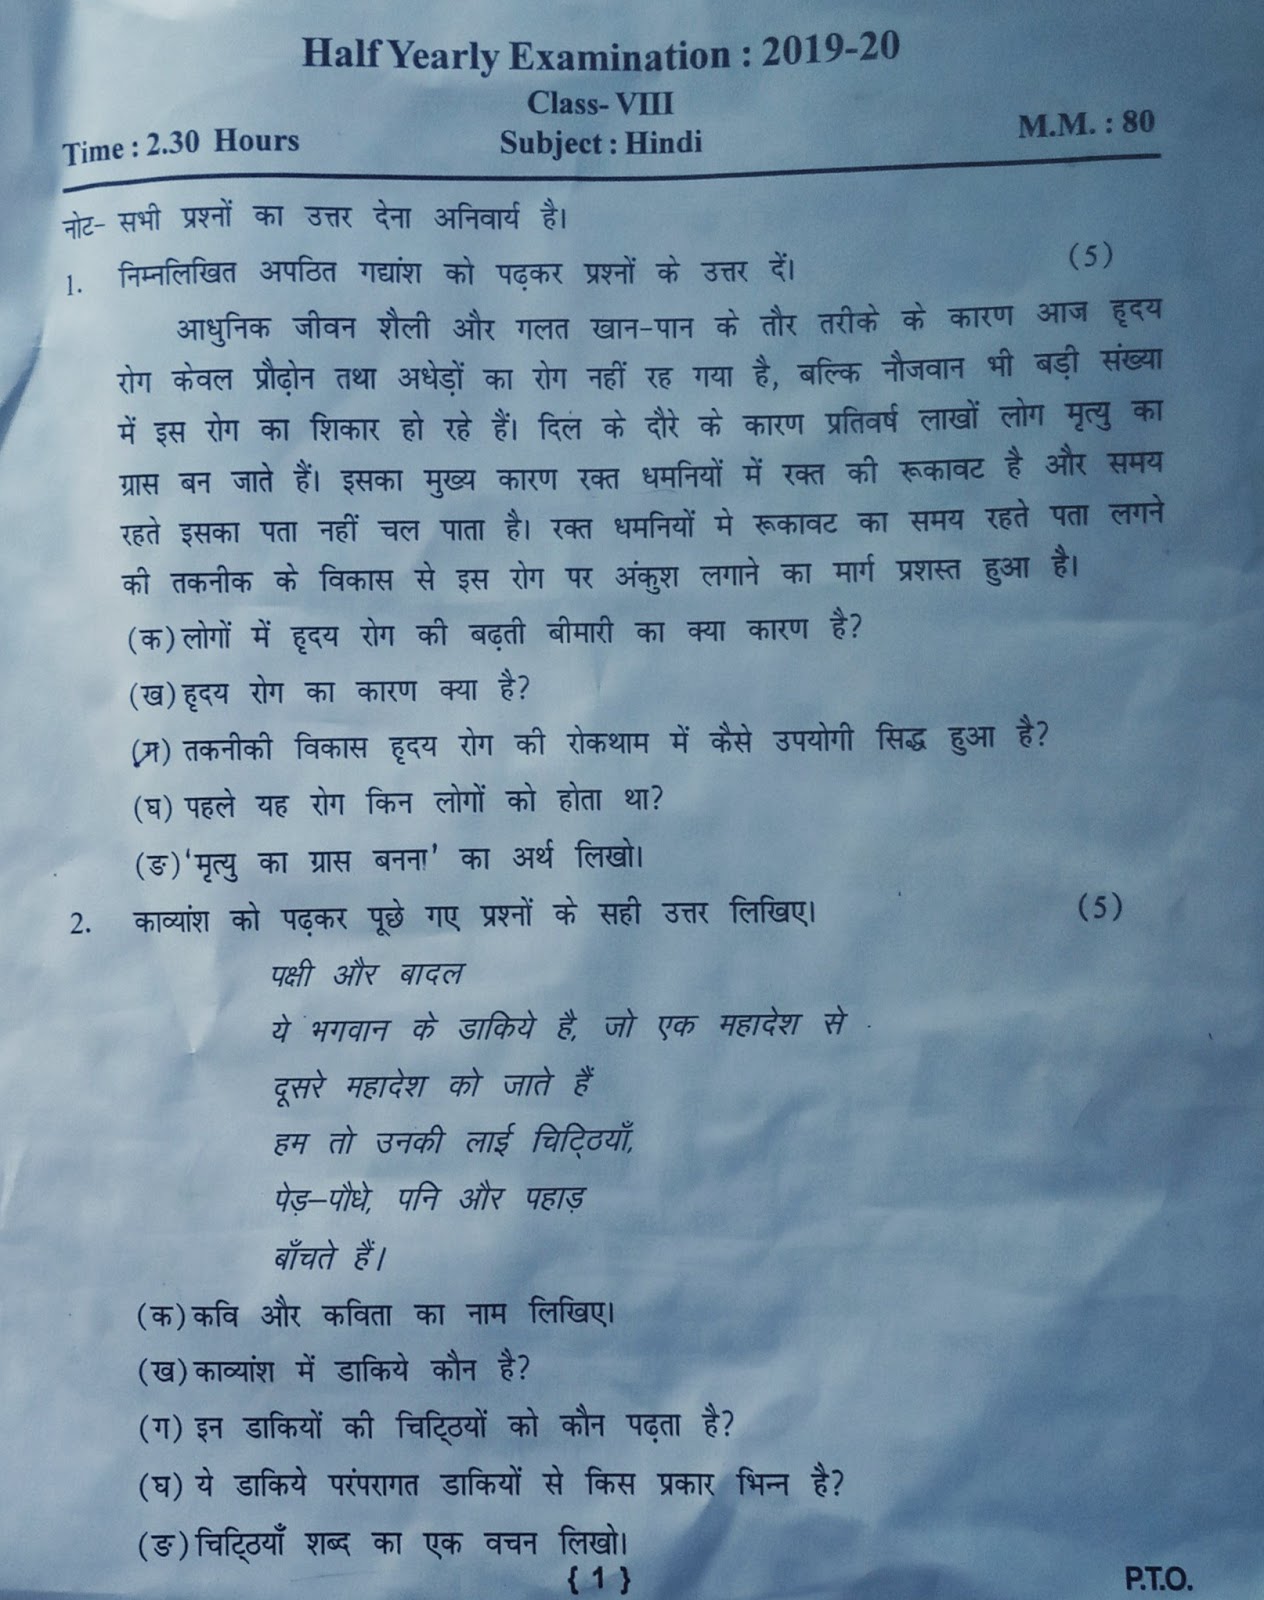 Half Yearly Examination : 2019-20
Class- VIII
Time : 2.30 Hours Subject : Hindi M.M. : 80
नोट- सभी प्रश्नों का उत्तर देना अनिवार्य है।
1. निम्नलिखित अपठित गद्यांश को पढ़कर प्रश्नों के उत्तर दें। (5)
आधुनिक जीवन शैली और गलत खान-पान के तौर तरीके के कारण आज हृदय
रोग केवल प्रौढ़ोन तथा अधेड़ों का रोग नहीं रह गया है, बल्कि नौजवान भी बड़ी संख्या
में इस रोग का शिकार हो रहे हैं। दिल के दौरे के कारण प्रतिवर्ष लाखों लोग मृत्यु का
ग्रास बन जाते हैं। इसका मुख्य कारण रक्त धमनियों में रक्त की रूकावट है और समय
रहते इसका पता नहीं चल पाता है। रक्त धमनियों मे रूकावट का समय रहते पता लगने
की तकनीक के विकास से इस रोग पर अंकुश लगाने का मार्ग प्रशस्त हुआ है।
(क) लोगों में हृदय रोग की बढ़ती बीमारी का क्या कारण है?
(ख) हृदय रोग का कारण क्या है?
(ग) तकनीकी विकास हृदय रोग की रोकथाम में कैसे उपयोगी सिद्ध हुआ है?
(घ) पहले यह रोग किन लोगों को होता था?
(ङ) 'मृत्यु का ग्रास बनना' का अर्थ लिखो।
2. काव्यांश को पढ़कर पूछे गए प्रश्नों के सही उत्तर लिखिए। (5)
पक्षी और बादल
ये भगवान के डाकिये है, जो एक महादेश से
दूसरे महादेश को जाते हैं
हम तो उनकी लाई चिट्ठियाँ,
पेड़-पौधे, पनि और पहाड़
बाँचते हैं।
(क) कवि और कविता का नाम लिखिए।
(ख) काव्यांश में डाकिये कौन है?
(ग) इन डाकियों की चिट्ठियों को कौन पढ़ता है?
(घ) ये डाकिये परंपरागत डाकियों से किस प्रकार भिन्न है?
(ङ) चिट्ठियाँ शब्द का एक वचन लिखो।
{ 1 } P.T.O.